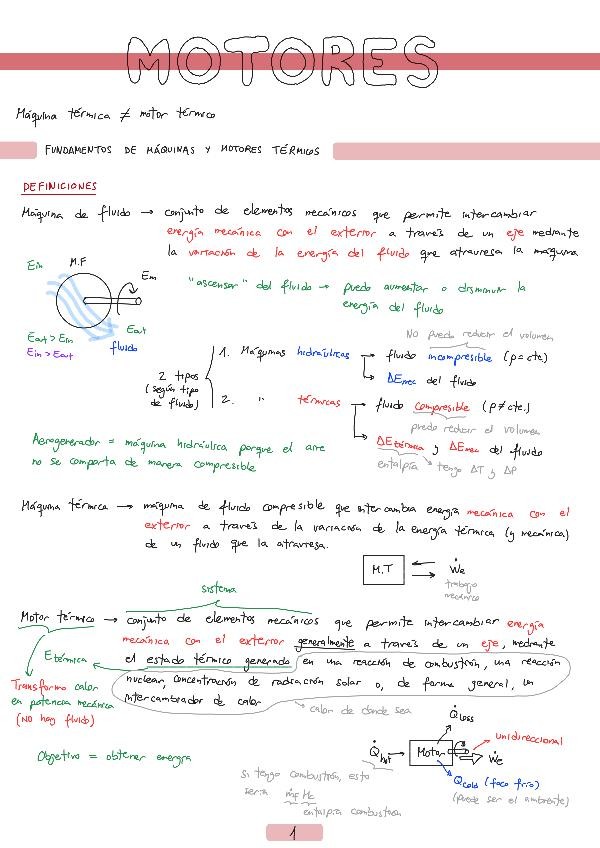 MOTORES
Máquina térmica ≠ motor térmico
FUNDAMENTOS DE MÁQUINAS Y MOTORES TÉRMICOS
DEFINICIONES
Máquina de fluido → conjunto de elementos mecánicos que permite intercambiar
energía mecánica con el exterior a través de un eje mediante
la variación de la energía del fluido que atraviesa la máquina
Ein
M.F
Em
Eout
fluido
Eout > Ein
Ein > Eout
"ascensor" del fluido → puedo aumentar o disminuir la
energía del fluido
No puedo reducir el volumen
2 tipos
(según tipo
de fluido)
1. Máquinas hidráulicas → fluido incompresible (ρ = cte.)
→ ΔEmec del fluido
2. " térmicas → fluido compresible (ρ ≠ cte.)
puedo reducir el volumen
→ ΔEtérmica y ΔEmec del fluido
entalpía → tengo ΔT y ΔP
Aerogenerador = máquina hidráulica porque el aire
no se comporta de manera compresible
Máquina térmica → máquina de fluido compresible que intercambia energía mecánica con el
exterior a través de la variación de la energía térmica (y mecánica)
de un fluido que la atraviesa.
M.T
Ẇe
trabajo
mecánico
sistema
Motor térmico → conjunto de elementos mecánicos que permite intercambiar energía
mecánica con el exterior generalmente a través de un eje, mediante
el estado térmico generado en una reacción de combustión, una reacción
nuclear, concentración de radiación solar o, de forma general, un
intercambiador de calor
Etérmica
Transformo calor
en potencia mecánica
(NO hay fluido)
→ calor de donde sea
Objetivo = obtener energía
Q̇loss
Q̇hot
Motor
unidireccional
Ẇe
Q̇cold (foco frío)
(puede ser el ambiente)
si tengo combustión, esto
sería ṁf Hc
entalpía combustión
1